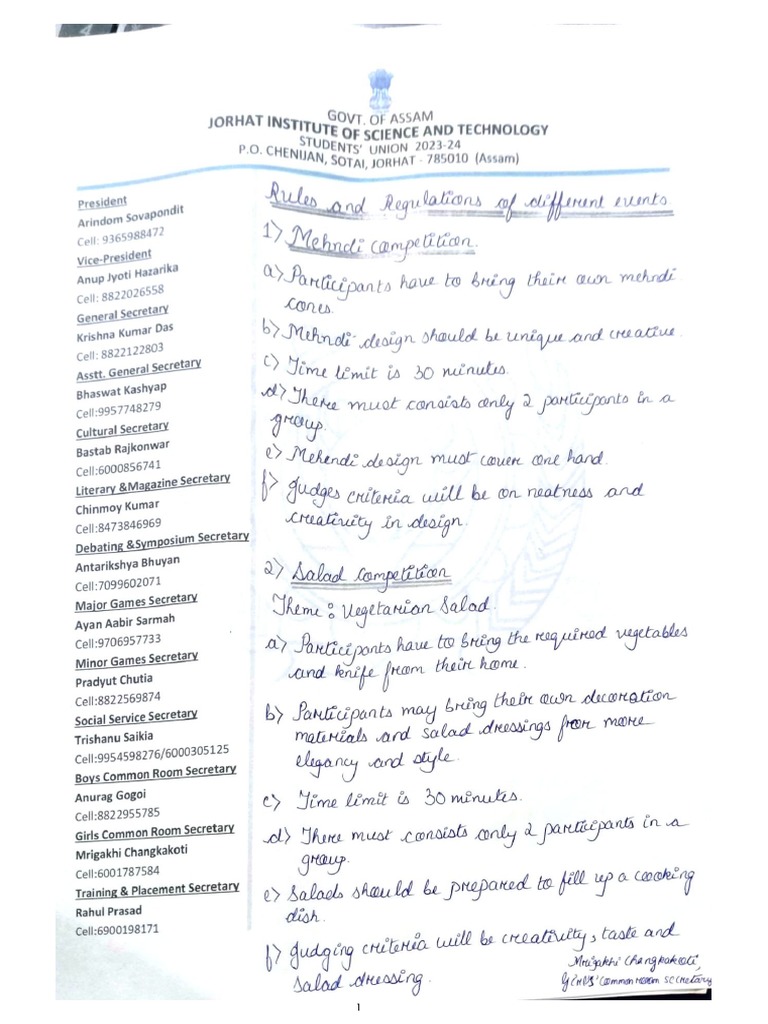 GOVT. OF ASSAM
JORHAT INSTITUTE OF SCIENCE AND TECHNOLOGY
STUDENTS' UNION 2023-24
P.O. CHENIJAN, SOTAI, JORHAT - 785010 (Assam)
President
Arindom Sovapondit
Cell: 9365988472
Vice-President
Anup Jyoti Hazarika
Cell: 8822026558
General Secretary
Krishna Kumar Das
Cell: 8822122803
Asstt. General Secretary
Bhaswat Kashyap
Cell:9957748279
Cultural Secretary
Bastab Rajkonwar
Cell:6000856741
Literary &Magazine Secretary
Chinmoy Kumar
Cell:8473846969
Debating &Symposium Secretary
Antarikshya Bhuyan
Cell:7099602071
Major Games Secretary
Ayan Aabir Sarmah
Cell:9706957733
Minor Games Secretary
Pradyut Chutia
Cell:8822569874
Social Service Secretary
Trishanu Saikia
Cell:9954598276/6000305125
Boys Common Room Secretary
Anurag Gogoi
Cell:8822955785
Girls Common Room Secretary
Mrigakhi Changkakoti
Cell:6001787584
Training & Placement Secretary
Rahul Prasad
Cell:6900198171
Rules and Regulations of different events
1) Mehndi competition.
a) Participants have to bring their own mehndi
cones.
b) Mehndi design should be unique and creative.
c) Time limit is 30 minutes.
d) There must consists only 2 participants in a
group.
e) Mehendi design must cover one hand.
f) Judges criteria will be on neatness and
creativity in design.
2) Salad Competition
Theme : Vegetarian Salad.
a) Participants have to bring the required vegetables
and knife from their home.
b) Participants may bring their own decoration
materials and salad dressings for more
elegancy and style.
c) Time limit is 30 minutes.
d) There must consists only 2 participants in a
group.
e) Salads should be prepared to fill up a cooking
dish.
f) Judging criteria will be creativity, taste and
salad dressing.
Mrigakhi Changkakoti,
Girls' Common room secretary
1